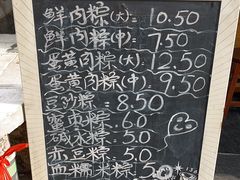 鲜肉粽(大)=10.50
鲜肉粽(中)=7.50
蛋黄肉粽(大)=12.50
蛋黄肉粽(中)=9.50
豆沙粽=8.50
蜜枣粽=6.0
碱水粽=5.0
赤豆粽=5.0
血糯米粽=5.0